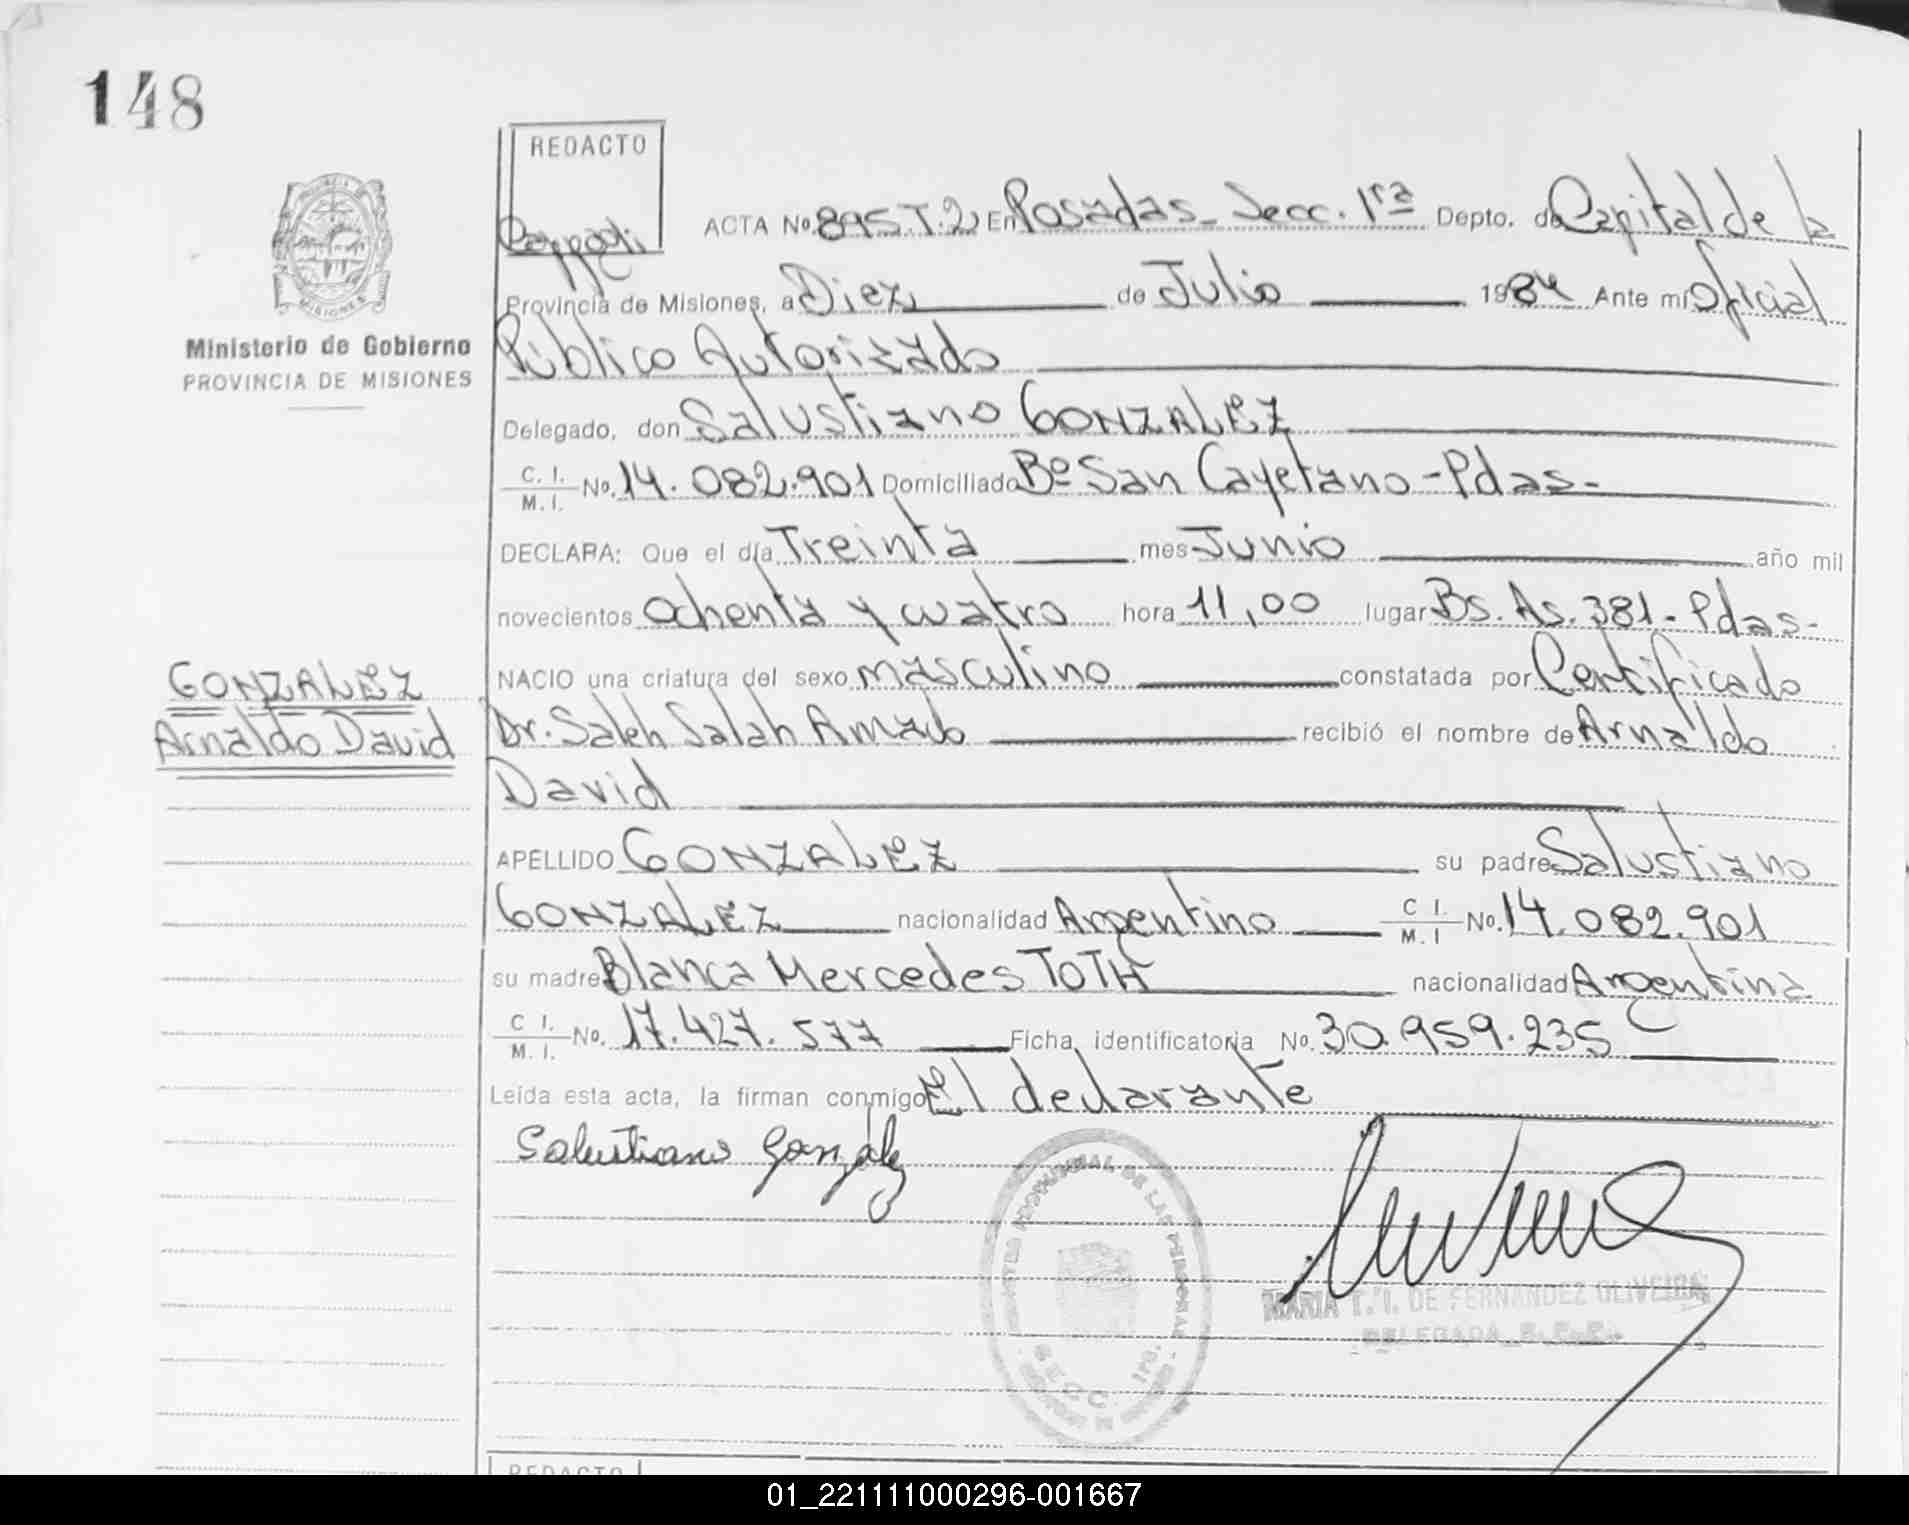 148
REDACTO
ACTA No. 895 T. 2 En Posadas - Secc. 1ra Depto. de Capital de la
Provincia de Misiones, a Diez de Julio 1984 Ante mi Oficial
Público Autorizado
Delegado, don Salustiano GONZALEZ
C. I. / M. I. No. 14.082.901 Domiciliado Bº San Cayetano - Pdas-
DECLARA: Que el día Treinta mes Junio año mil
novecientos ochenta y cuatro hora 11,00 lugar Bs. As. 381 - Pdas-
NACIO una criatura del sexo masculino constatada por Certificado
Dr. Saleh Salah Amado recibió el nombre de Arnaldo
David
APELLIDO GONZALEZ su padre Salustiano
GONZALEZ nacionalidad Argentino C I. / M. I No. 14.082.901
su madre Blanca Mercedes TOTH nacionalidad Argentina
C I. / M. I. No. 17.427.577 Ficha identificatoria No. 30.959.235
Leída esta acta, la firman conmigo El declarante
Salustiano González
MARIA T. I. DE FERNANDEZ OLIVEIRA
DELEGADA
SECC. 1ra.
MISIONES
Ministerio de Gobierno
PROVINCIA DE MISIONES
GONZALEZ
Arnaldo David
REDACTO
01_221111000296-001667